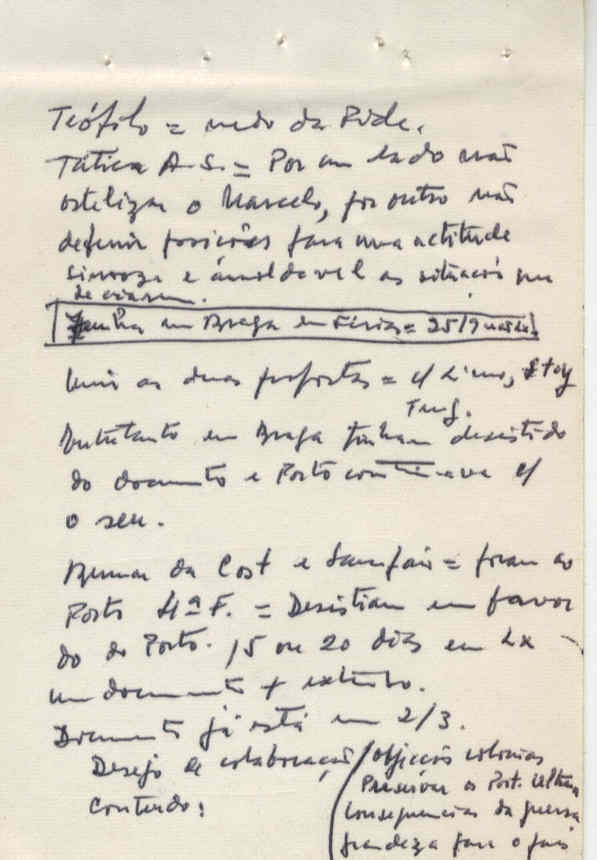 Teófilo = medo da Pide.
Tática A.S. = Por um lado não
ostilizar o Marcelo, por outro não
definir posições para uma actitude
sinuosa e amoldavel as situações que
se criarem.
em Braga em Férias = 25/9
unir as duas propostas = c/
Entretanto em Braga tinham desistido
do documento e Porto continuava c/
o seu.
da Cost e Sampaio = foram ao
Porto 4ª F. = Desistiam em favor
do do Porto. 15 ou 20 dias em Lx
um documento + extenso.
Documento já está em 2/3.
Desejo de colaboração
Conteudo:
objecções colonias
Preservar os Port. Ultram
Consequencias da guerra
grandeza para o país